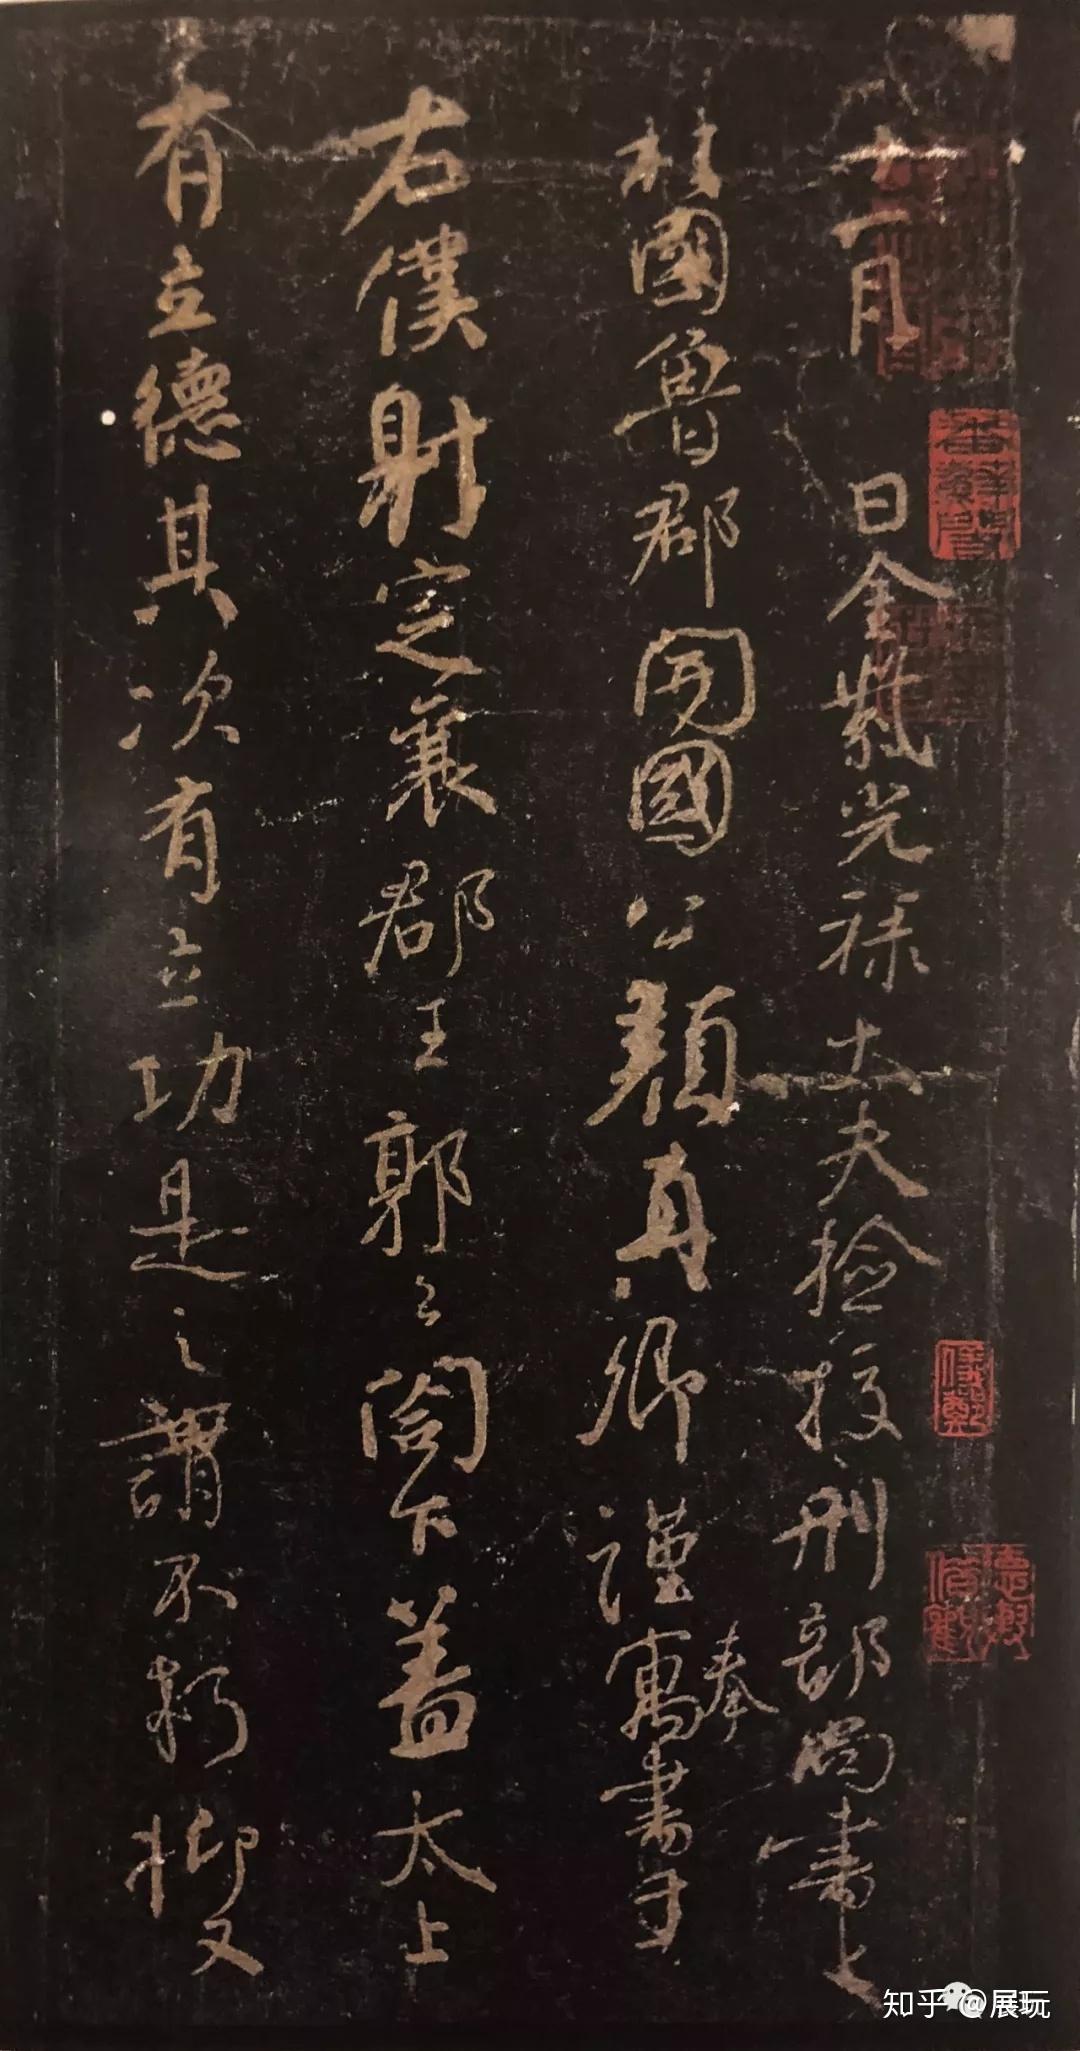 十一月日金紫光祿大夫檢校刑部尚書上
柱國魯郡開國公顏真卿謹奉寓書于
右僕射定襄郡王郭公閤下蓋太上
有立德其次有立功是之謂不朽抑又
知乎 @展玩